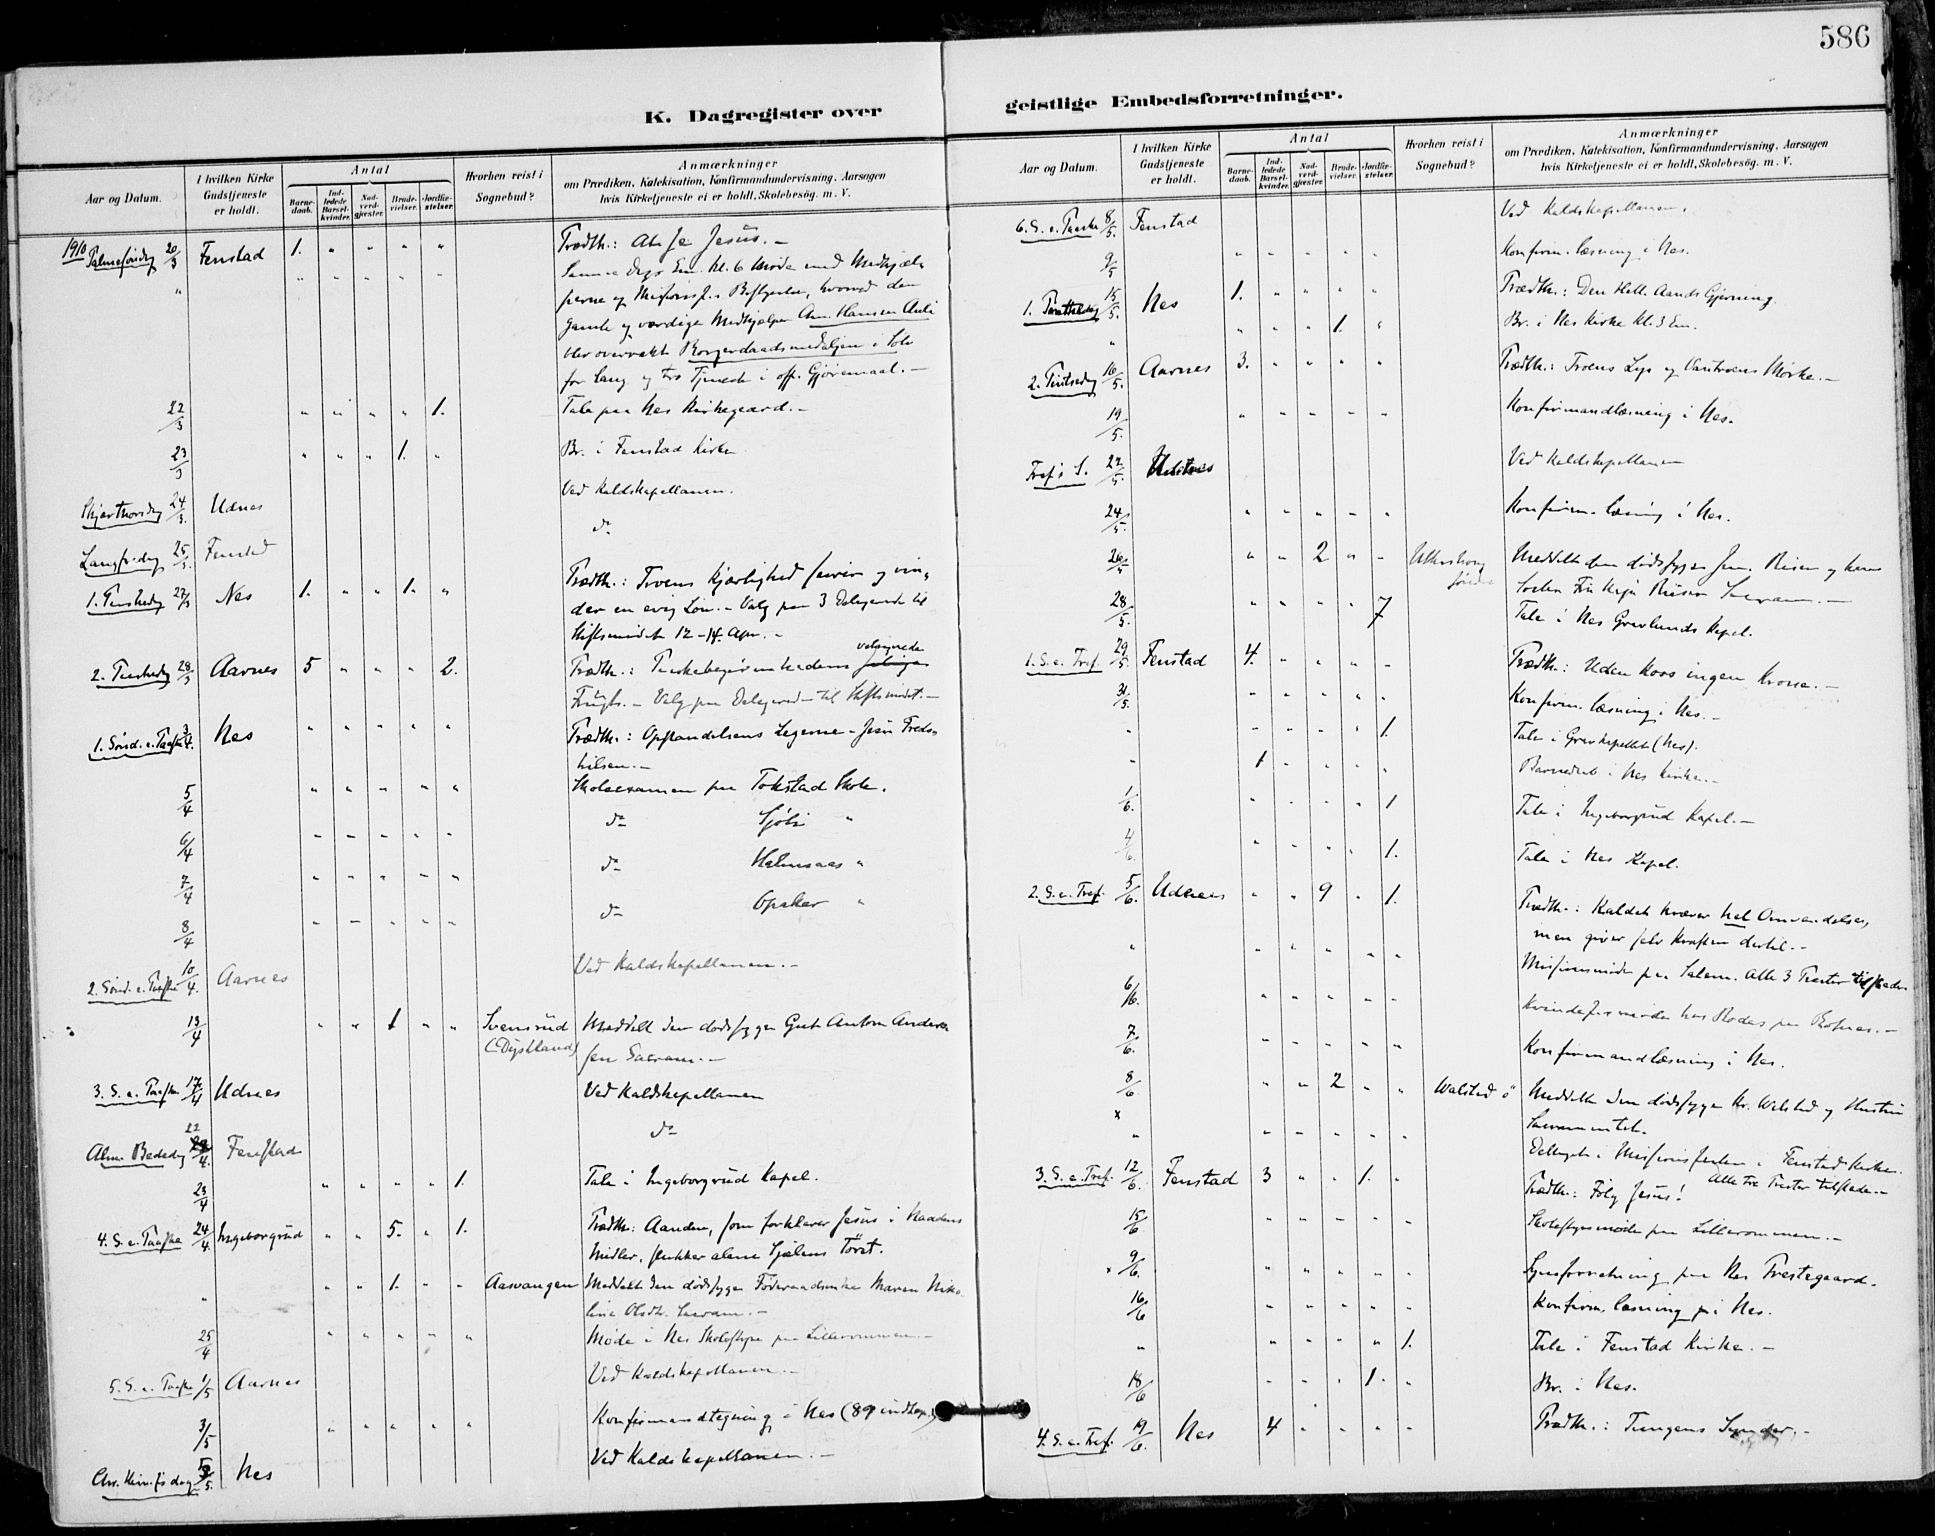 586
K. Dagregister over
geistlige Embedsforretninger.
Aar og Datum.
I hvilken Kirke Gudstjeneste er holdt.
Antal
Barnedaab.
Indledede Barselkvinder.
Nadverdgjester.
Brudevielser.
Jordfæstelser.
Hvorhen reist i Sognebud?
Anmærkninger
om Prædiken, Katekisation, Konfirmandundervisning, Aarsagen
hvis Kirketjeneste ei er holdt, Skolebesög. m. V.
1910 Palmesöndag 20/3 Fenstad 1. " " " " Prædk.: At se Jesus. –
" " " " " " Samme Dags Em. Kl. 6 Møde med Medhjæl-
perne og Missionsf.s Bestyrelse, hvorved den
gamle og værdige Medhjælper Am. Hansen Auli
blev overrakt Borgerdaadsmedaljen i Sølv
for lang og tro Tjeneste i off. Gjøremaal. –
22/3 " " " " 1. Tale paa Nes Kirkegaard. –
23/3 " " " 1. " Br. i Fenstad Kirke
Skjærthorsdag 24/3. Udnes Ved Kaldskapellanen.
Langfredag 25/3. Fenstad do
1. Paaskedag 27/3 Nes 1. " " 1. " Prædk.: Troens Kjærlighed søver og vin-
der en evig Løn. – Valg paa 3 Delegerede til
Stiftsmødet 12–14. Apr. –
2. Paaskedag 28/3 Aarnes 5 " " " 2. Prædk.: Paaskebegivenhedens velsignede
Frugt. – Valg paa Delegered– til Stiftsmødet. –
1. Sønd. e. Paaske 3/4. Nes " " " " " Prædk.: Opstandelsens Legeme – Jesu Freds-
hilsen. –
5/4 " " " " " Skoleexamen paa Tokstad Skole.
6/4 " " " " " do Sjøli "
7/4 " " " " " do Helmsaas "
8/4 " " " " " do Opaker "
2. Sønd. e. Paaske 10/4. Aarnes Ved Kaldskapellanen. –
13/4 " " 1 " " Svensrud Meddelt den dødssyge Gut Anton Ander-
(Dystland) sen Sacram. –
3. S. e. Paaske 17/4 Udnes Ved Kaldskapellanen
Alm. Bededag 22/4. Fenstad do
23/4 " " " " 1. Tale i Ingeborgrud Kapel.
4. S. e. Paaske 24/4. Ingeborgrud " " 5. " 1. Prædk: Aanden, som forklarer Jesus i Naadens
Midler, slukker alene Sjælens Tørst.
" " " 1. " " Aasvangen Meddelt den dødssyge Føderaadsenke Maren Niko-
line Olsdtr. Sacram. –
25/4 " " " " " Møde i Nes Skolestyre paa Lilleromunen. –
5. S. e. Paaske 1/5 Aarnes Ved Kaldskapellanen. –
3/5 " " " " " Konfirmandtegning i Nes (89 indtegn.)
Chr. Himf.sdag 5/5. Nes Ved Kaldskapellanen. –
Aar og Datum.
I hvilken Kirke Gudstjeneste er holdt.
Antal
Barnedaab.
Indledede Barselkvinder.
Nadverdgjester.
Brudevielser.
Jordfæstelser.
Hvorhen reist i Sognebud?
Anmærkninger
om Prædiken, Katekisation, Konfirmandundervisning, Aarsagen
hvis Kirketjeneste ei er holdt, Skolebesög. m. V.
6. S. e. Paaske 8/5. Fenstad Ved Kaldskapellanen.
9/5 " " " " " Konfirm. læsning i Nes.
1. Pinsedag 15/5. Nes 1. " " " " Prædk.: Den Hell. Aands Gjerning.
" " " " 1. " Br. i Nes Kirke Kl. 3 Em.
2. Pintsedag 16/5. Aarnes 3. " " " " Prædk.: Troens Lys og Vantroens Mørke. –
19/5. " " " " " Konfirmandlæsning i Nes.
Tref.s S. 22/5. Udnes Ved Kaldskapellanen
24/5. " " " " " Konfirm. læsning i Nes.
26/5 " " 2 " " Meddelt den dødssyge
28/5. " " " " 7 Tale i Nes Gravlunds Kapel.
1. S. e. Tref. 29/5. Fenstad 4. " " " " Prædk: Uden Kors ingen Krone. –
31/5. " " " " " Konfirm. læsning i Nes. –
" " " " " 1. Tale i Gravkapellet (Nes).
" 1 " " " " Barnedaab i Nes Kirke. –
1/6. " " " " 1 Tale i Ingeborgrud Kapel. –
4/6. " " " " 1. Tale i Nes Kapel.
2. S. e. Tref. 5/6. Udnes " " 9 " 1. Prædk.: Kaldet kræver hel Omvendelse,
men giver selv Kraften dertil. –
" " " " " " Missionsmøde paa Salem. Alle 3 Prester tilstede
6/6. " " " " " Kvindef.smøde hos Rodes paa Rofnes. –
7/6. " " " " " Konfirmandlæsning i Nes.
8/6 " " 2 " " Walstad ö Meddelt den dødssyge Kr. Walstad og Hustru
Sacramentet.
x " " " " " " Deltaget i Missionsfesten i Fenstad Kirke.
Alle tre Prester tilstede. –
3. S. e. Tref. 12/6. Fenstad 3 " " 1. " Prædk.: Følg Jesus!
15/6 " " " " " Skolestyremøde paa Lilleromunen. –
x 9/6. " " " " " Synsforretning paa Nes Prestegaard.
16/6 " " " " " Konfirm. læsning på Nes.
" " " " " 1. Tale i Fenstad Kirke. –
18/6 " " " 1. " Br. i Nes.
4. S. e. Tref. 19/6. Nes 4 " " " " Prædk.: Tungens Synder. –